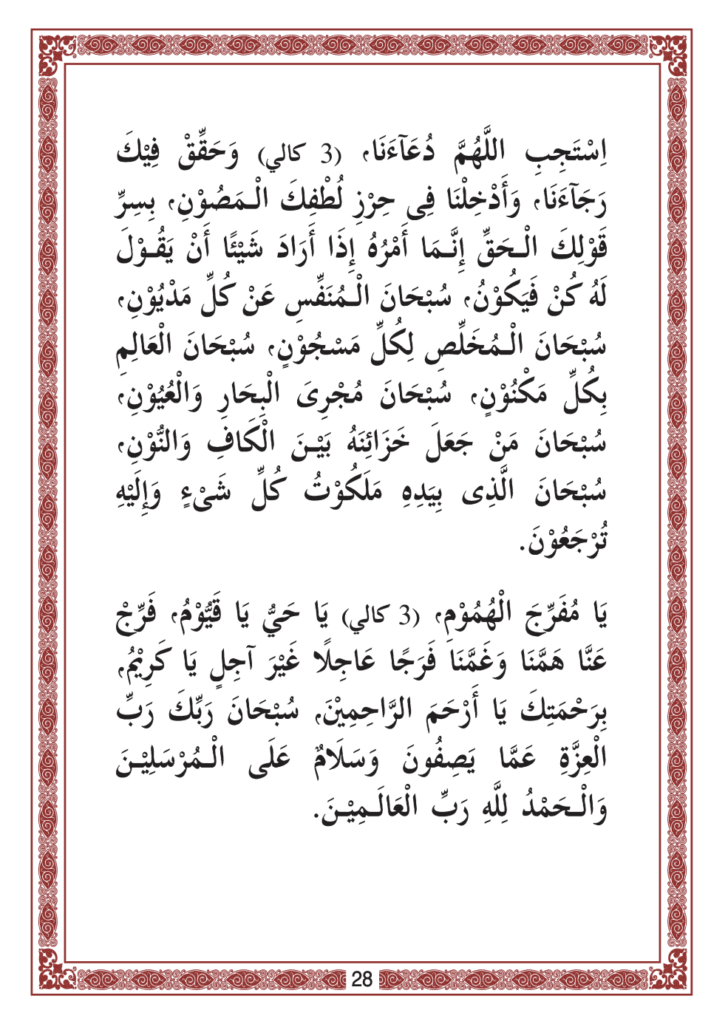 اِسْتَجِبِ اللَّهُمَّ دُعَآءَنَا، (3 كالي) وَحَقِّقْ فِيْكَ
رَجَآءَنَا، وَأَدْخِلْنَا فِى حِرْزِ لُطْفِكَ الْـمَصُوْنِ، بِسِرِّ
قَوْلِكَ الْـحَقِّ إِنَّـمَا أَمْرُهُ إِذَا أَرَادَ شَيْئًا أَنْ يَقُـوْلَ
لَهُ كُنْ فَيَكُوْنُ، سُبْحَانَ الْـمُنَفِّسِ عَنْ كُلِّ مَدْيُوْنٍ،
سُبْحَانَ الْـمُخَلِّصِ لِكُلِّ مَسْجُوْنٍ، سُبْحَانَ الْعَالِمِ
بِكُلِّ مَكْنُوْنٍ، سُبْحَانَ مُجْرِىَ الْبِحَارِ وَالْعُيُوْنِ،
سُبْحَانَ مَنْ جَعَلَ خَزَائِنَهُ بَيْـنَ الْكَافِ وَالنُّوْنِ،
سُبْحَانَ الَّذِى بِيَدِهِ مَلَكُوْتُ كُلِّ شَىْءٍ وَإِلَيْهِ
تُرْجَعُوْنَ.
يَا مُفَرِّجَ الْهُمُوْمِ، (3 كالي) يَا حَيُّ يَا قَيُّوْمُ، فَرِّجْ
عَنَّا هَمَّنَا وَغَمَّنَا فَرَجًا عَاجِلًا غَيْرَ آجِلٍ يَا كَرِيْمُ،
بِرَحْمَتِكَ يَا أَرْحَمَ الرَّاحِمِيْنَ، سُبْحَانَ رَبِّكَ رَبِّ
الْعِزَّةِ عَمَّا يَصِفُونَ وَسَلَامٌ عَلَى الْـمُرْسَلِيْـنَ
وَالْـحَمْدُ لِلَّهِ رَبِّ الْعَالَـمِيْـنَ.
28